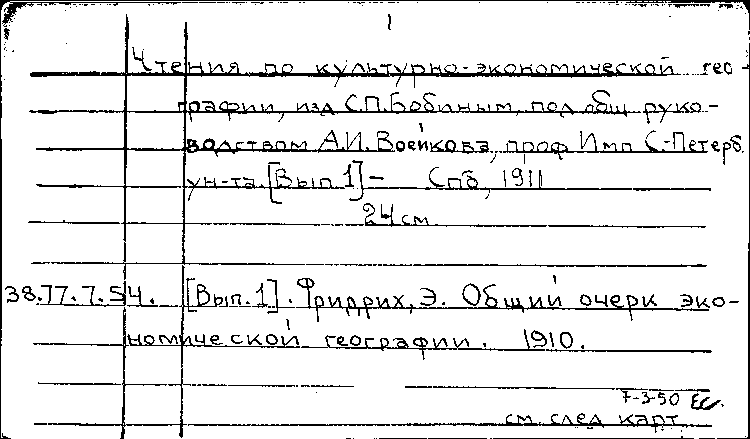 1
Чтения по культурно-экономической гео-
графии, изд С.П.Бобиным, под общ руко-
водством А.И. Воейкова, проф Имп С.-Петерб
ун-та. [Вып 1] - Спб, 1911
24 см
38.77.7.54. [Вып. 1]. Фридрих, Э. Общий очерк эко-
номической географии. 1910.
7-3-50 ЕС.
см след карт